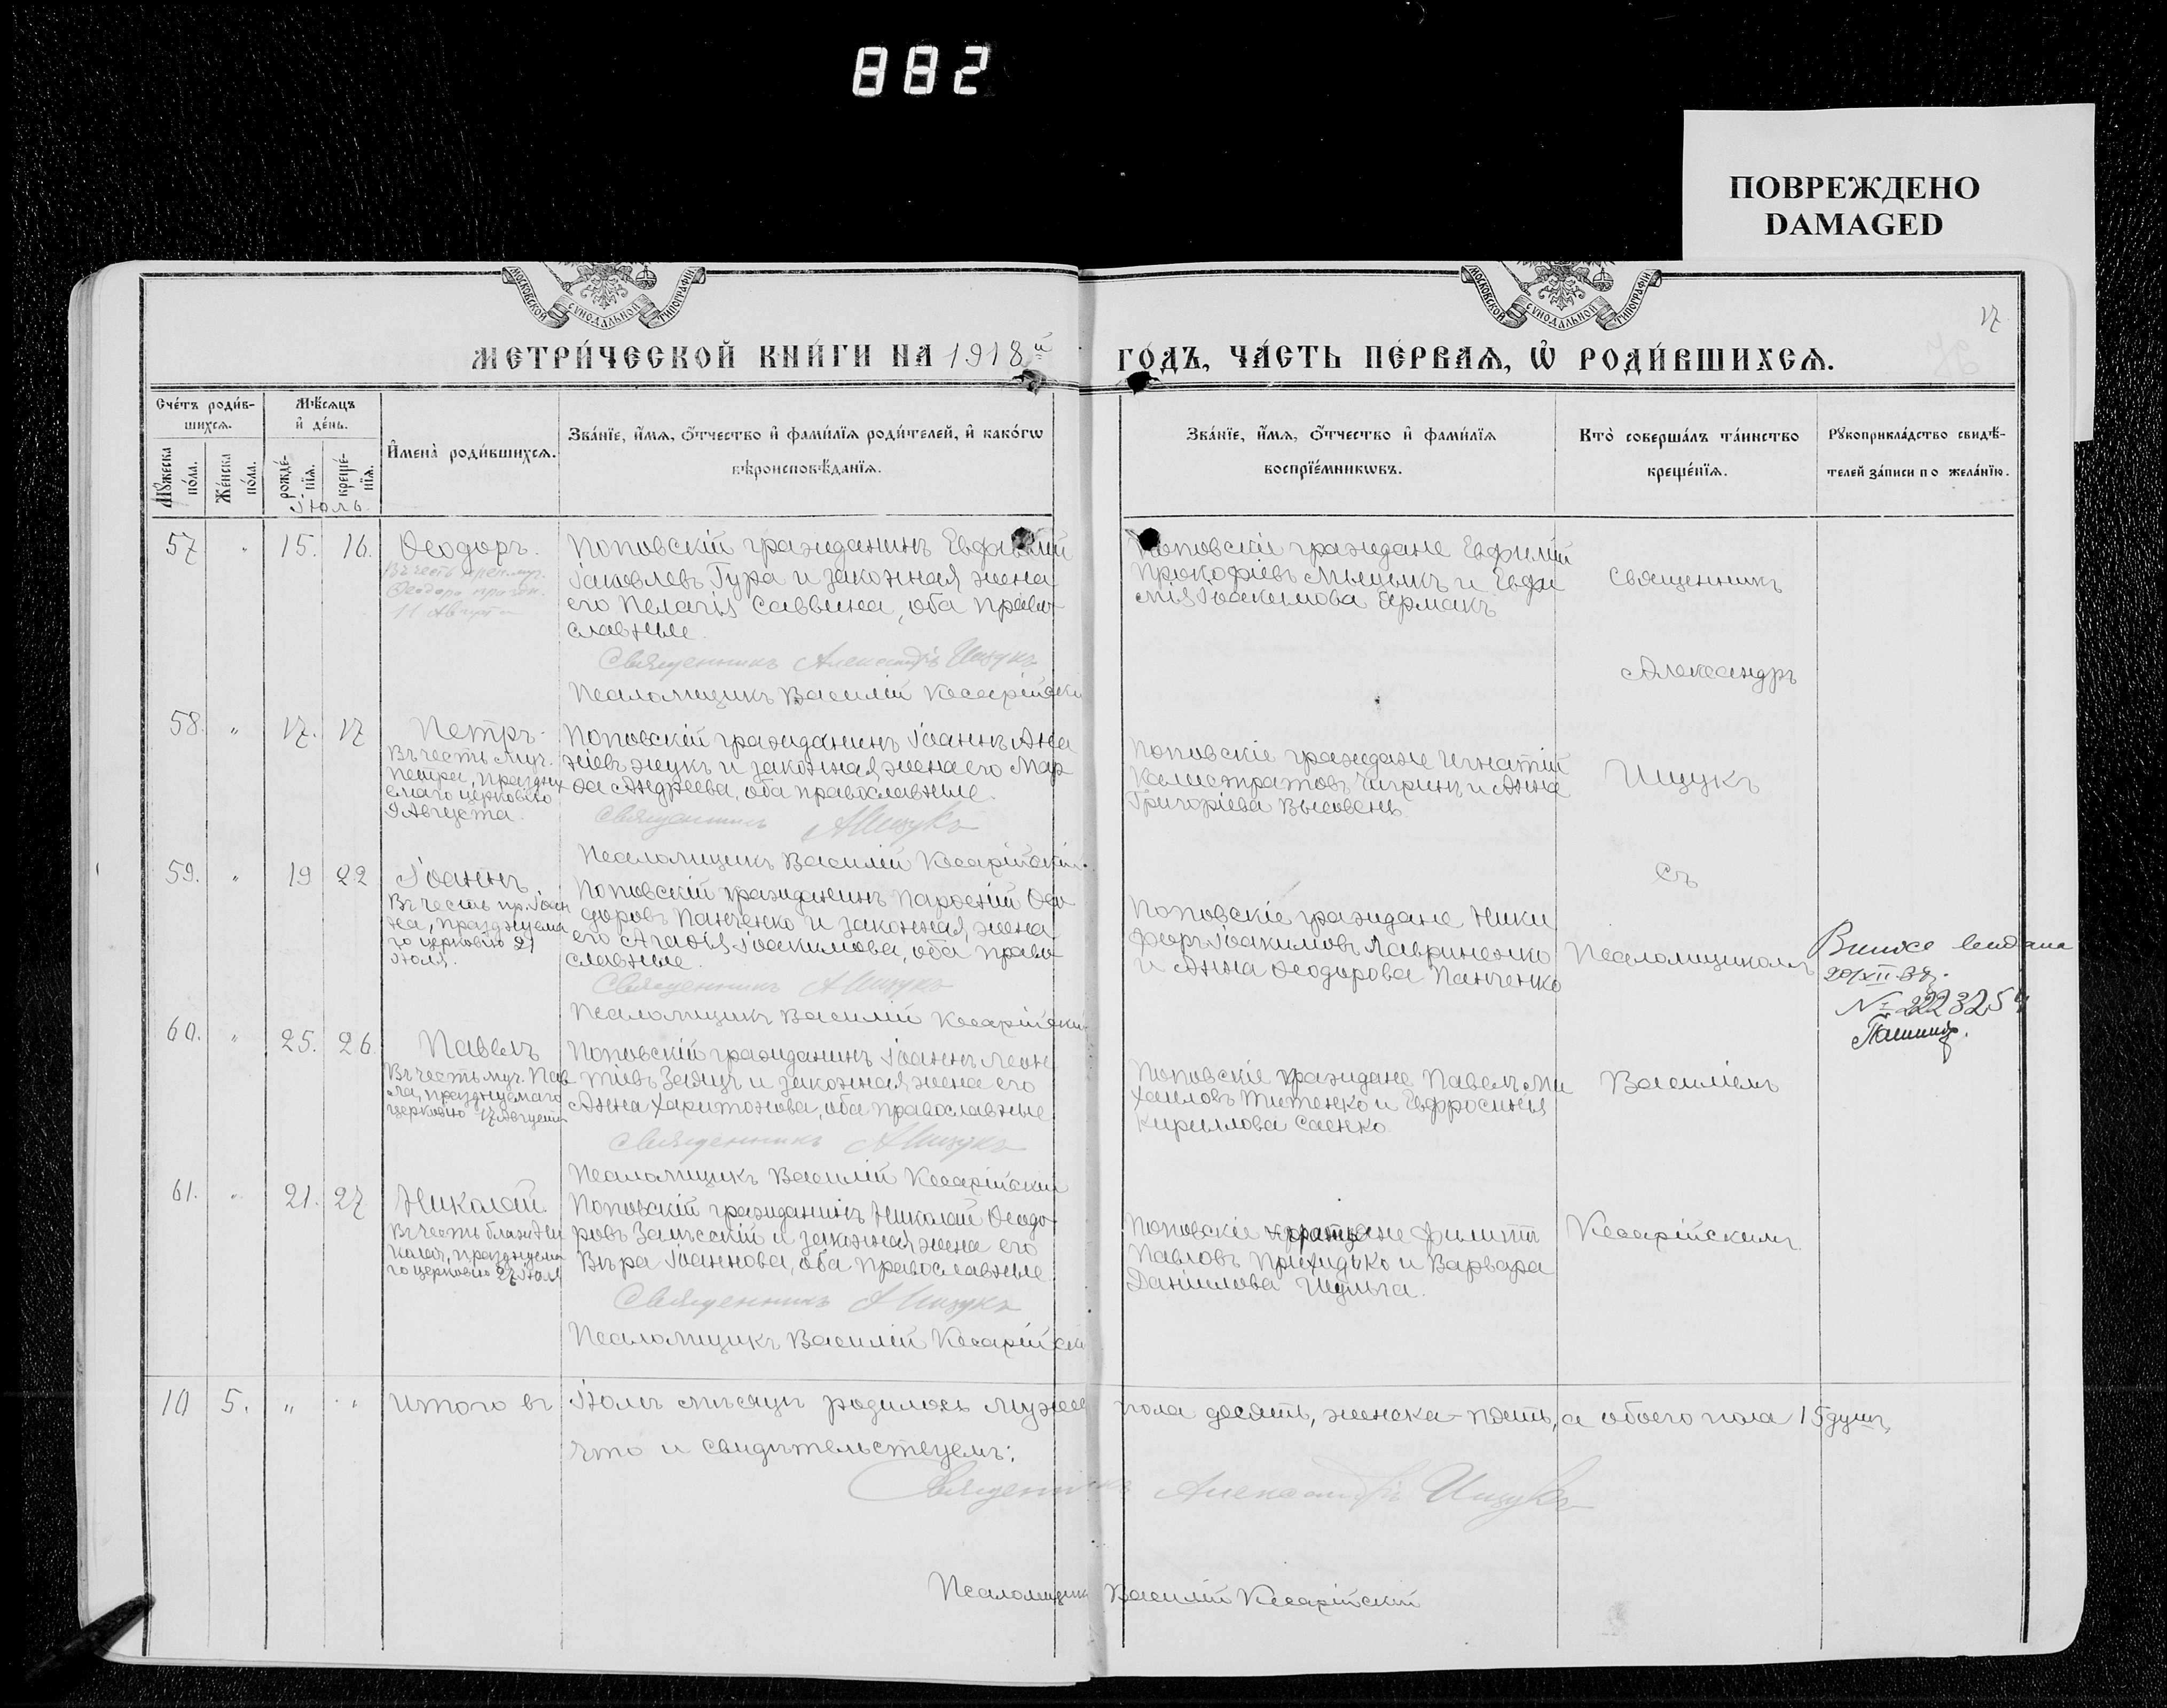 882
ПОВРЕЖДЕНО
DAMAGED
МОСКОВСКОЙ СѴНОДАЛЬНОЙ ТИПОГРАФІИ
МОСКОВСКОЙ СѴНОДАЛЬНОЙ ТИПОГРАФІИ
17
МЕТРИ́ЧЕСКОЙ КНИ́ГИ НА 1918й
ГО́ДЪ, ЧА́СТЬ ПЕ́РВАѦ, Ѡ҆ РОДИ́ВШИХСѦ.
Сче́тъ роди́в-
шихсѧ.
Мѣ́сѧцъ
и҆ де́нь.
Мꙋ́жеска по́ла.
Же́нска по́ла.
рожде́-
нїѧ.
креще́-
нїѧ.
Іюль.
И҆мена̀ роди́вшихсѧ.
Зва́нїе, и҆́мѧ, ѻ҆́тчество и҆ фами́лїѧ роди́телей, и҆ како́гѡ
вѣроисповѣ́данїѧ.
Зва́нїе, и҆́мѧ, ѻ҆́тчество и҆ фами́лїѧ
воспрїе́мникѡвъ.
Кто̀ соверша́лъ та́инство
креще́нїѧ.
Рꙋкоприкла́дство свидѣ́-
телей за́писи по жела́нїю.
57 " 15. 16.
Ѳеодоръ.
Въ честь преп. муч.
Ѳеодора праздн.
11 Августа
Поповскій гражданинъ Евфимій
Іаковлевъ Гура и законная жена
его Пелагія Саввина, оба право-
славные.
Священникъ Александръ Ищукъ
Псаломщикъ Василій Кесарійскій
Поповскіе граждане Евфимій
Прокофіевъ Мыцыкъ и Евфи
мія Іоакимова Ермакъ
Священникъ
Александръ
58. " 17. 17
Петръ.
Въ честь муч.
Петра, праздну
емаго церковію
9 Августа.
Поповскій гражданинъ Іоаннъ Ана
ніевъ Жукъ и законная жена его Мар
ѳа Андреева, оба православные.
Священникъ АИщукъ
Псаломщикъ Василій Кесарійскій.
Поповскіе граждане Игнатій
Калистратовъ Чигринъ и Анна
Григоріева Высовень
Ищукъ
59. " 19 22
Іоаннъ
Въ честь пр. Іоан
на, празднуема
го церковію 21
Іюля.
Поповскій гражданинъ Парѳеній Ѳео
доровъ Панченко и законная жена
его Агаѳія Іоакимова, оба право
славные.
Священникъ АИщукъ
Псаломщикъ Василій Кесарійскій
Поповскіе граждане Ники
форъ Іоакимовъ Лавриненко
и Анна Ѳеодорова Панченко
съ
Псаломщикомъ
20/XII
60. " 25. 26
Павелъ
Въ честь муч. Пав
ла, празднуемаго
церковію 17 Августа
Поповскій гражданинъ Іоаннъ Леон
тіевъ Заяцъ и законная жена его
Анна Харитонова, оба православные
Священникъ АИщукъ
Псаломщикъ Василій Кесарійскій
Поповскіе граждане Павелъ Ми
хаиловъ Титенко и Евфросинія
Кириллова Саенко
Василіемъ
61. " 21. 27
Николай
Въ честь блаж. Ни
колая, празднуема
го церковію 27 Іюля
Поповскій гражданинъ Николай Ѳеодо
ровъ Залѣсскій и законная жена его
Вѣра Іоаннова, оба православные.
Священникъ АИщукъ
Псаломщикъ Василій Кесарійскій
Поповскіе граждане Филиппъ
Павловъ Прихидько и Варвара
Даніилова Шульга.
Кесарійскимъ
10 5. " " Итого въ Іюлѣ мѣсяцѣ родилось мужес пола десять, женска - пять, а обоего пола 15 душъ,
что и свидѣтельствуемъ:
Священникъ Александръ Ищукъ
Псаломщикъ Василій Кесарійскій